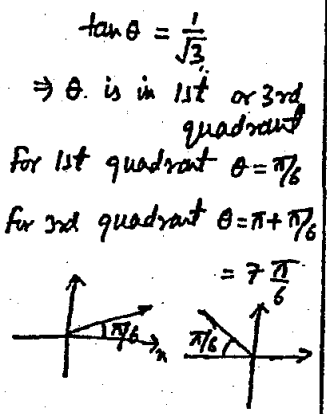 tan θ = 1/√3
⇒ θ. is in 1st or 3rd
quadrant
For 1st quadrant θ = π/6
For 3rd quadrant θ = π + π/6
= 7 π/6
π/6 x
π/6